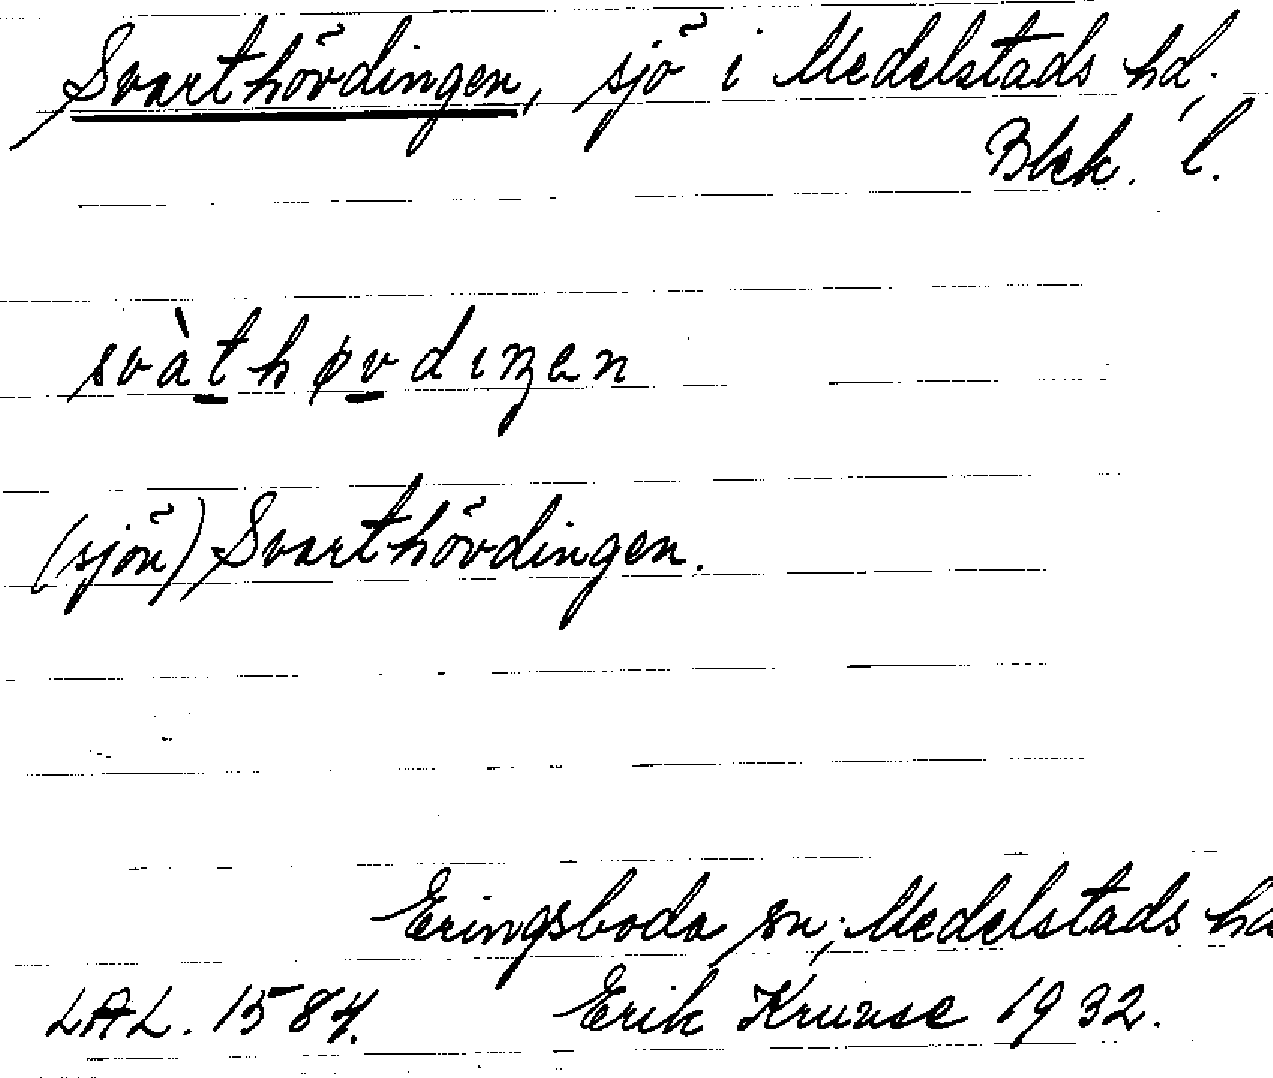 Svarthövdingen, sjö i Medelstads hd.
Blek. l.
svàthøvdiŋen
(sjön) Svarthövdingen.
Eringsboda sn, Medelstads hd
LAL. 1584. Erik Kruuse 1932.